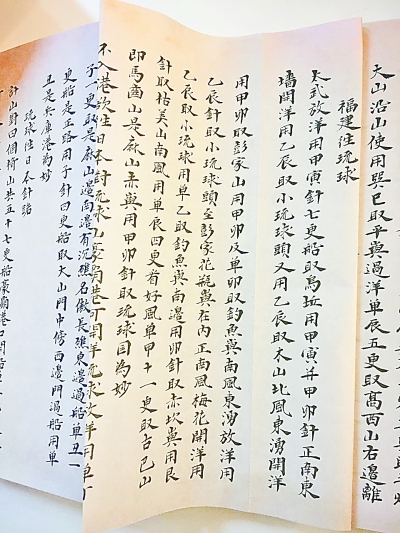 大山沿山使用巽巳取平與過洋單辰五更取高西山右邊離
福建往琉球
太武放洋用甲寅針七更船取烏坵用甲寅并甲卯針正南東
墻開洋用乙辰取小琉球頭又用乙辰取木山北風東湧開洋
用甲卯取彭家山用甲卯及單卯取釣魚與南風東湧放洋用
乙辰針取小琉球頭至彭家花瓶與在內正南風梅花開洋用
乙辰取小琉球用單乙取釣魚與南邊用卯針取赤坎與用艮
針取枯美山南風用單辰四更看好風單甲十一更取古巴山
即馬齒山是麻山赤與用甲卯針取琉球國為妙
不入港欲往日本對琉球山豪霸港可開洋琉球放洋用單丁
子一更取是麻山邊南邊有沉礁名做長礁東邊過船單丑一
更船是正路用子針四更船取大山門中傍西邊門過船用單
丑是兵庫港為妙
琉球往日本針路
計山對四個椅山共五十七更船豪霸港口開船單